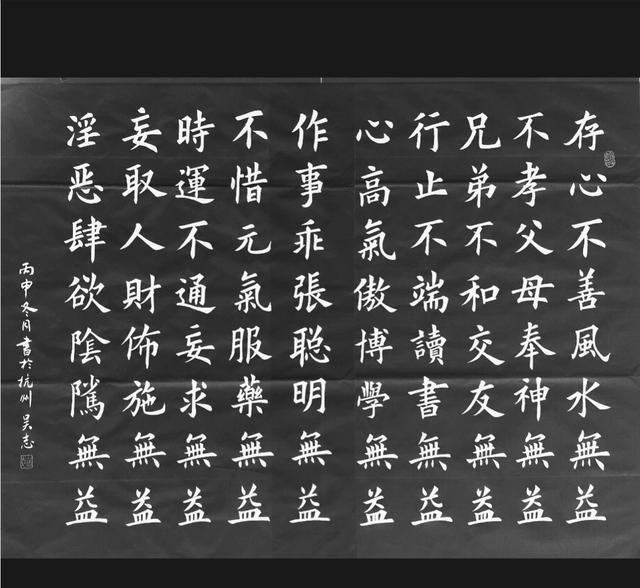 存心不善風水無益
不孝父母奉神無益
兄弟不和交友無益
行止不端讀書無益
心高氣傲博學無益
作事乖張聪明無益
不惜元氣服藥無益
時運不通妄求無益
妄取人財佈施無益
淫惡肆欲陰隲無益
丙申冬月書於杭州吴志